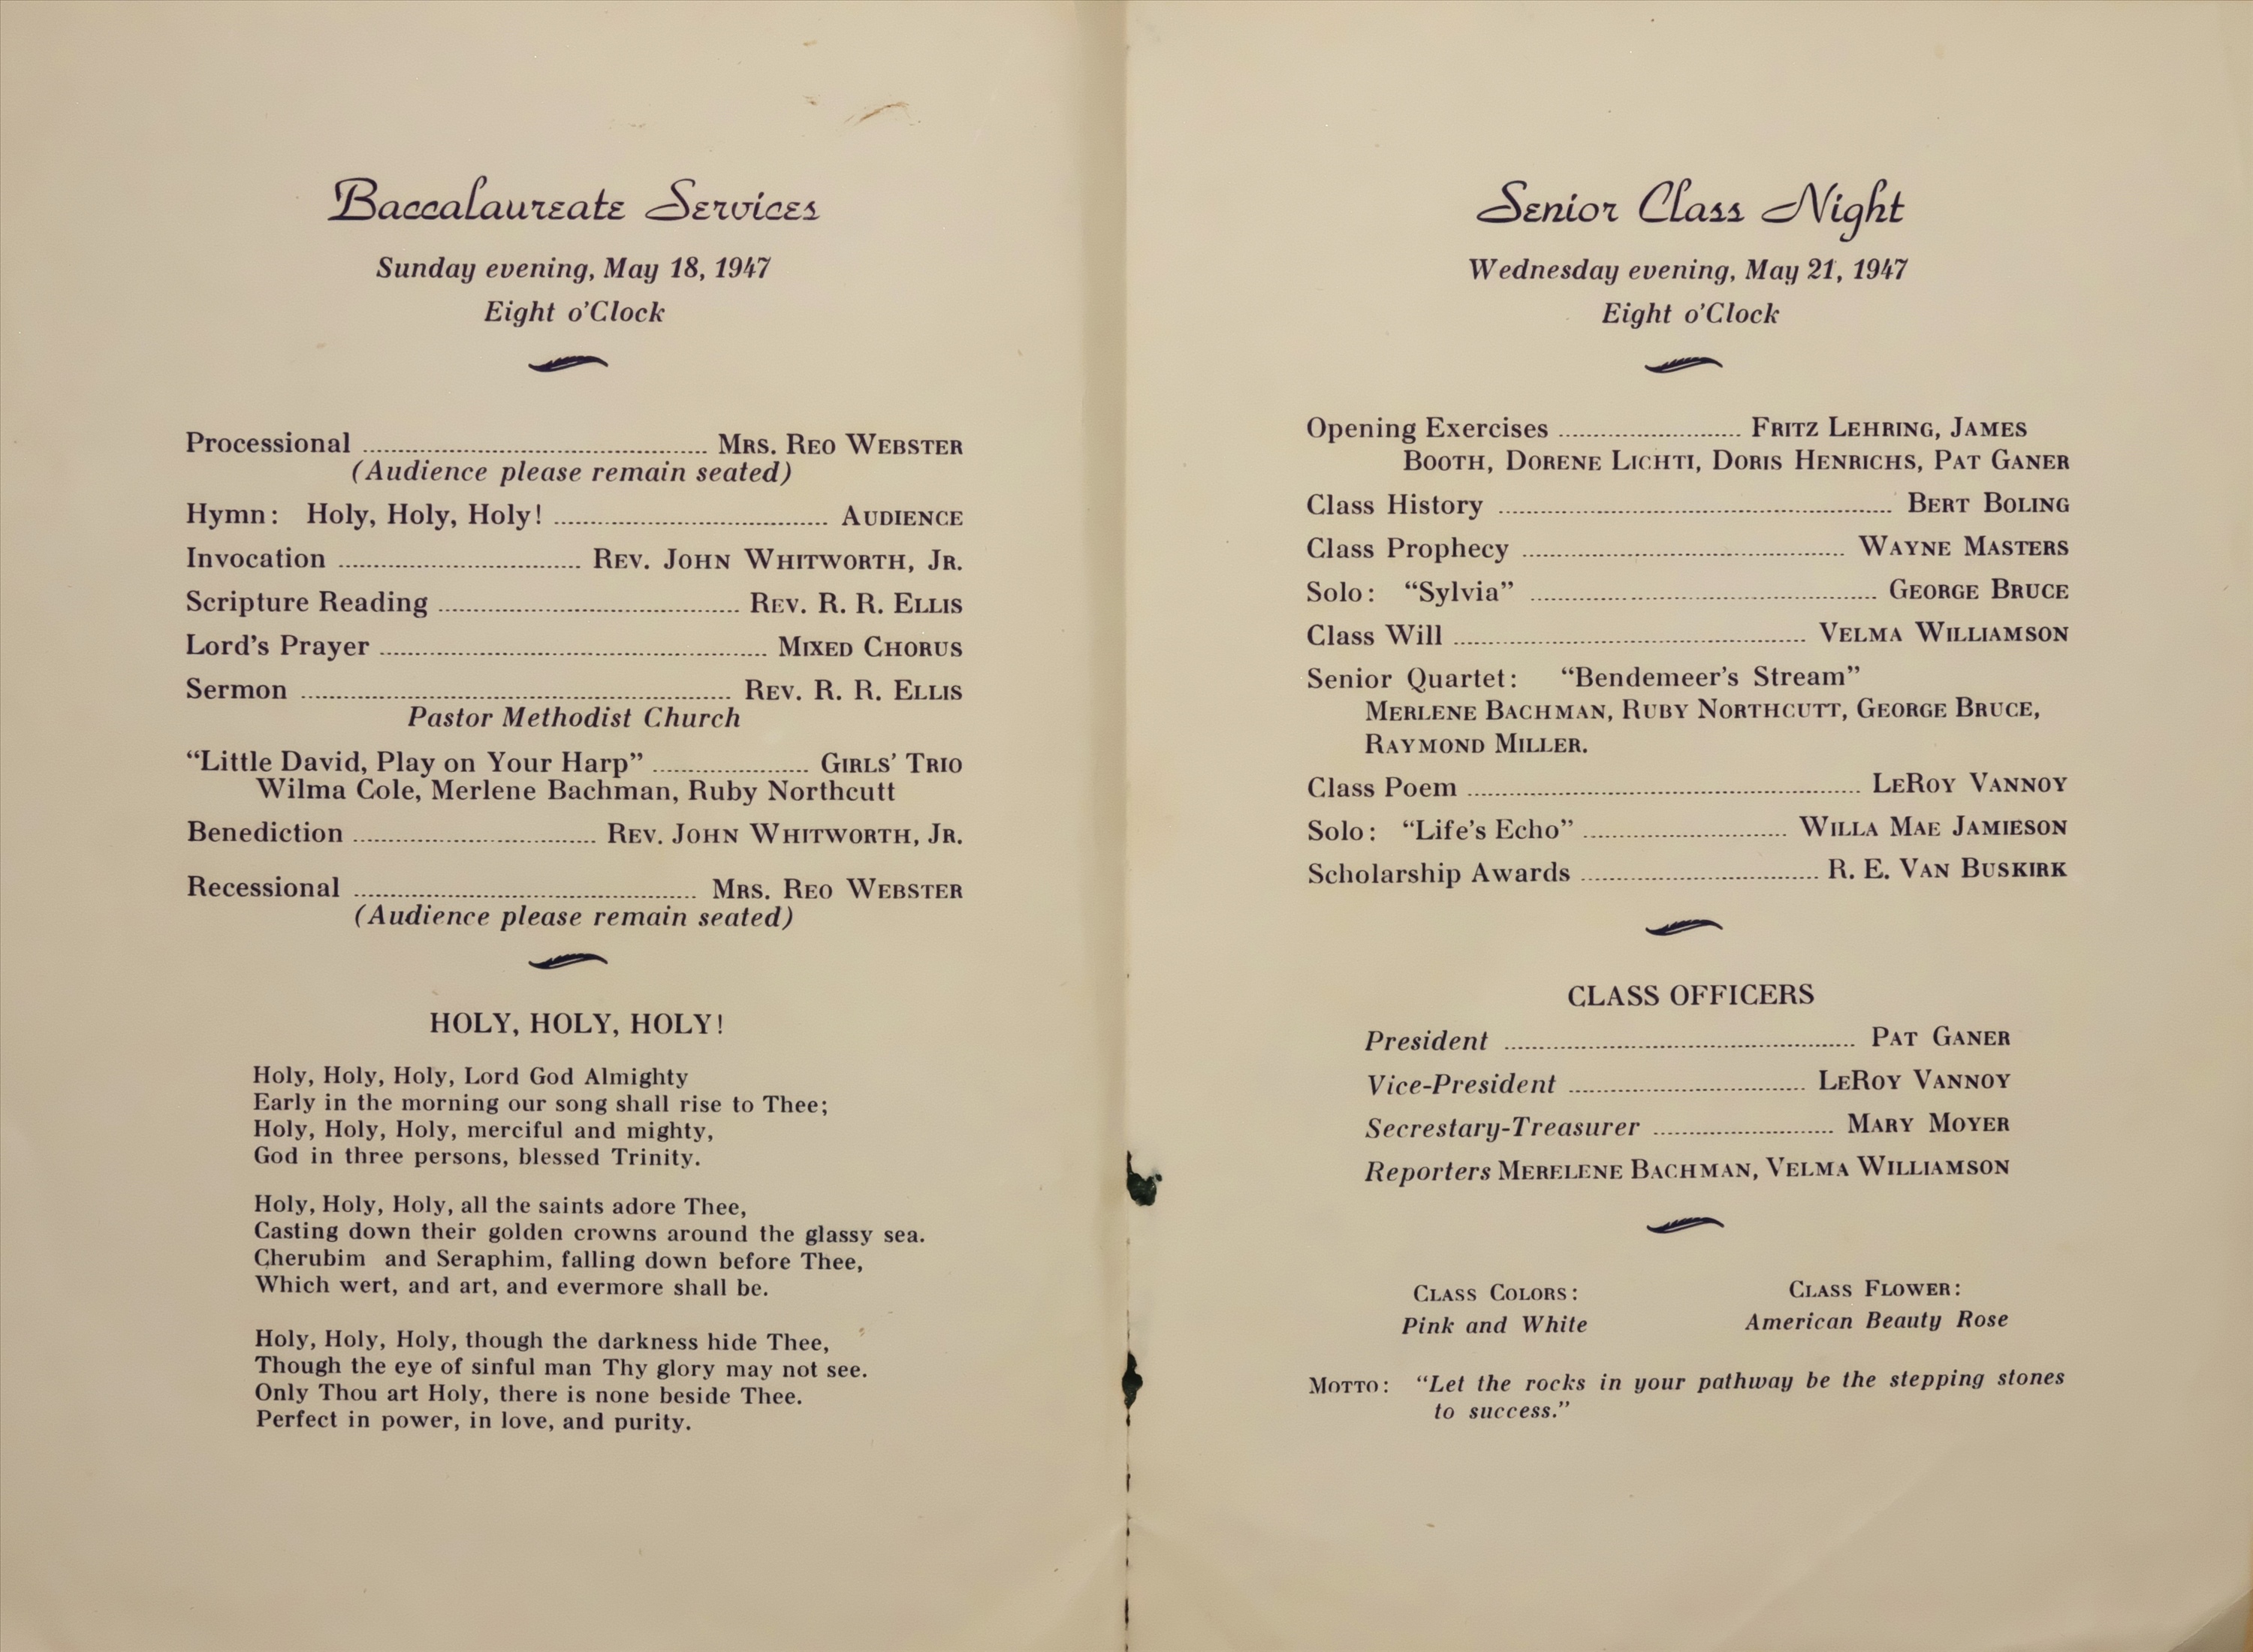 Baccalaureate Services
Sunday evening, May 18, 1947
Eight o'Clock
Processional ........ MRS. REO WEBSTER
(Audience please remain seated)
Hymn: Holy, Holy, Holy! ........ AUDIENCE
Invocation ........ REV. JOHN WHITWORTH, JR.
Scripture Reading ........ REV. R. R. ELLIS
Lord's Prayer ........ MIXED CHORUS
Sermon ........ REV. R. R. ELLIS
Pastor Methodist Church
“Little David, Play on Your Harp” ........ GIRLS' TRIO
Wilma Cole, Merlene Bachman, Ruby Northcutt
Benediction ........ REV. JOHN WHITWORTH, JR.
Recessional ........ MRS. REO WEBSTER
(Audience please remain seated)
HOLY, HOLY, HOLY!
Holy, Holy, Holy, Lord God Almighty
Early in the morning our song shall rise to Thee;
Holy, Holy, Holy, merciful and mighty,
God in three persons, blessed Trinity.
Holy, Holy, Holy, all the saints adore Thee,
Casting down their golden crowns around the glassy sea.
Cherubim and Seraphim, falling down before Thee,
Which wert, and art, and evermore shall be.
Holy, Holy, Holy, though the darkness hide Thee,
Though the eye of sinful man Thy glory may not see.
Only Thou art Holy, there is none beside Thee.
Perfect in power, in love, and purity.
Senior Class Night
Wednesday evening, May 21, 1947
Eight o'Clock
Opening Exercises ........ FRITZ LEHRING, JAMES
BOOTH, DORENE LICHTI, DORIS HENRICHS, PAT GANER
Class History ........ BERT BOLING
Class Prophecy ........ WAYNE MASTERS
Solo: “Sylvia” ........ GEORGE BRUCE
Class Will ........ VELMA WILLIAMSON
Senior Quartet: “Bendemeer's Stream”
MERLENE BACHMAN, RUBY NORTHCUTT, GEORGE BRUCE,
RAYMOND MILLER.
Class Poem ........ LEROY VANNOY
Solo: “Life's Echo” ........ WILLA MAE JAMIESON
Scholarship Awards ........ R. E. VAN BUSKIRK
CLASS OFFICERS
President ........ PAT GANER
Vice-President ........ LEROY VANNOY
Secrestary-Treasurer ........ MARY MOYER
Reporters MERELENE BACHMAN, VELMA WILLIAMSON
CLASS COLORS:
Pink and White
CLASS FLOWER:
American Beauty Rose
MOTTO: “Let the rocks in your pathway be the stepping stones
to success.”